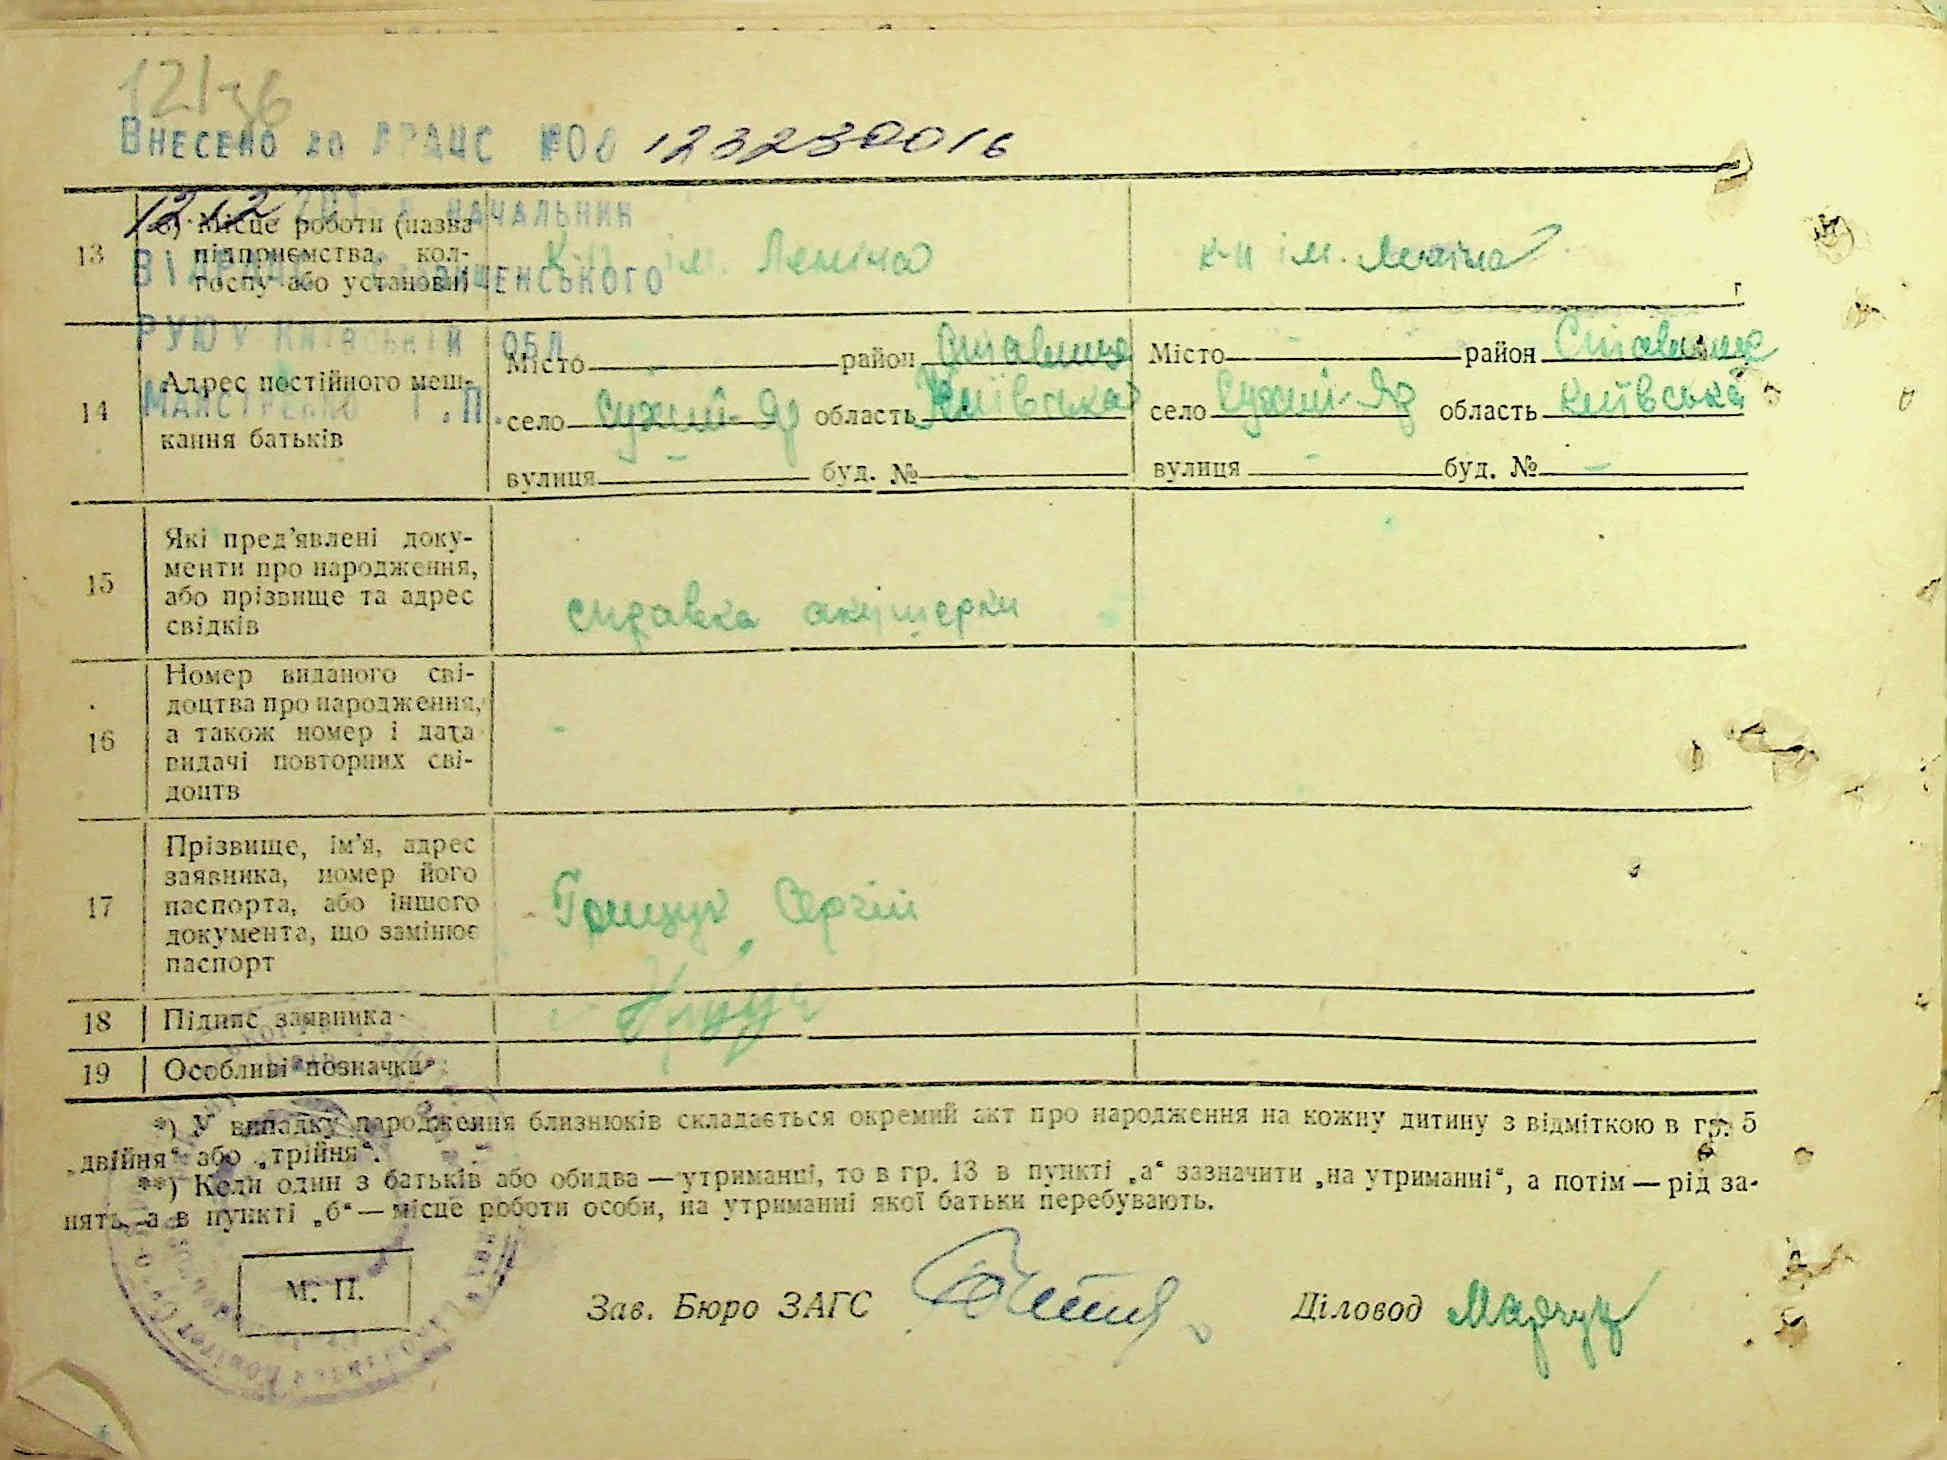 12/36
Внесено до ДРАЦС №00 123230016
12.12 начальник
13 б) Місце роботи (назва підприємства, колгоспу або установи) К-п ім. Леніна к-п ім. Леніна
ВІДРАЦС Ставищенського
РУЮ у Київській обл.
Майстренко Г.П.
14 Адрес постійного мешкання батьків
Місто район Ставище Місто район Ставище
село Сухий-Яр область Київська село Сухий-Яр область Київська
вулиця - буд. № - вулиця - буд. № -
15 Які пред'явлені доку-
менти про народження,
або прізвище та адрес
свідків
справка акушерки
16 Номер виданого сві-
доцтва про народження,
а також номер і дата
видачі повторних сві-
доцтв
-
17 Прізвище, ім'я, адрес
заявника, номер його
паспорта, або іншого
документа, що замінює
паспорт
Грищук Сергій
18 Підпис заявника
19 Особливі позначки
*) У випадку народження близнюків складається окремий акт про народження на кожну дитину з відміткою в гр. 5
„двійня“ або „трійня“.
**) Коли один з батьків або обидва — утриманці, то в гр. 13 в пункті „а“ зазначити „на утриманні“, а потім — рід за-
нять, а в пункті „б“ — місце роботи особи, на утриманні якої батьки перебувають.
М. П.
Зав. Бюро ЗАГС Діловод Марчук